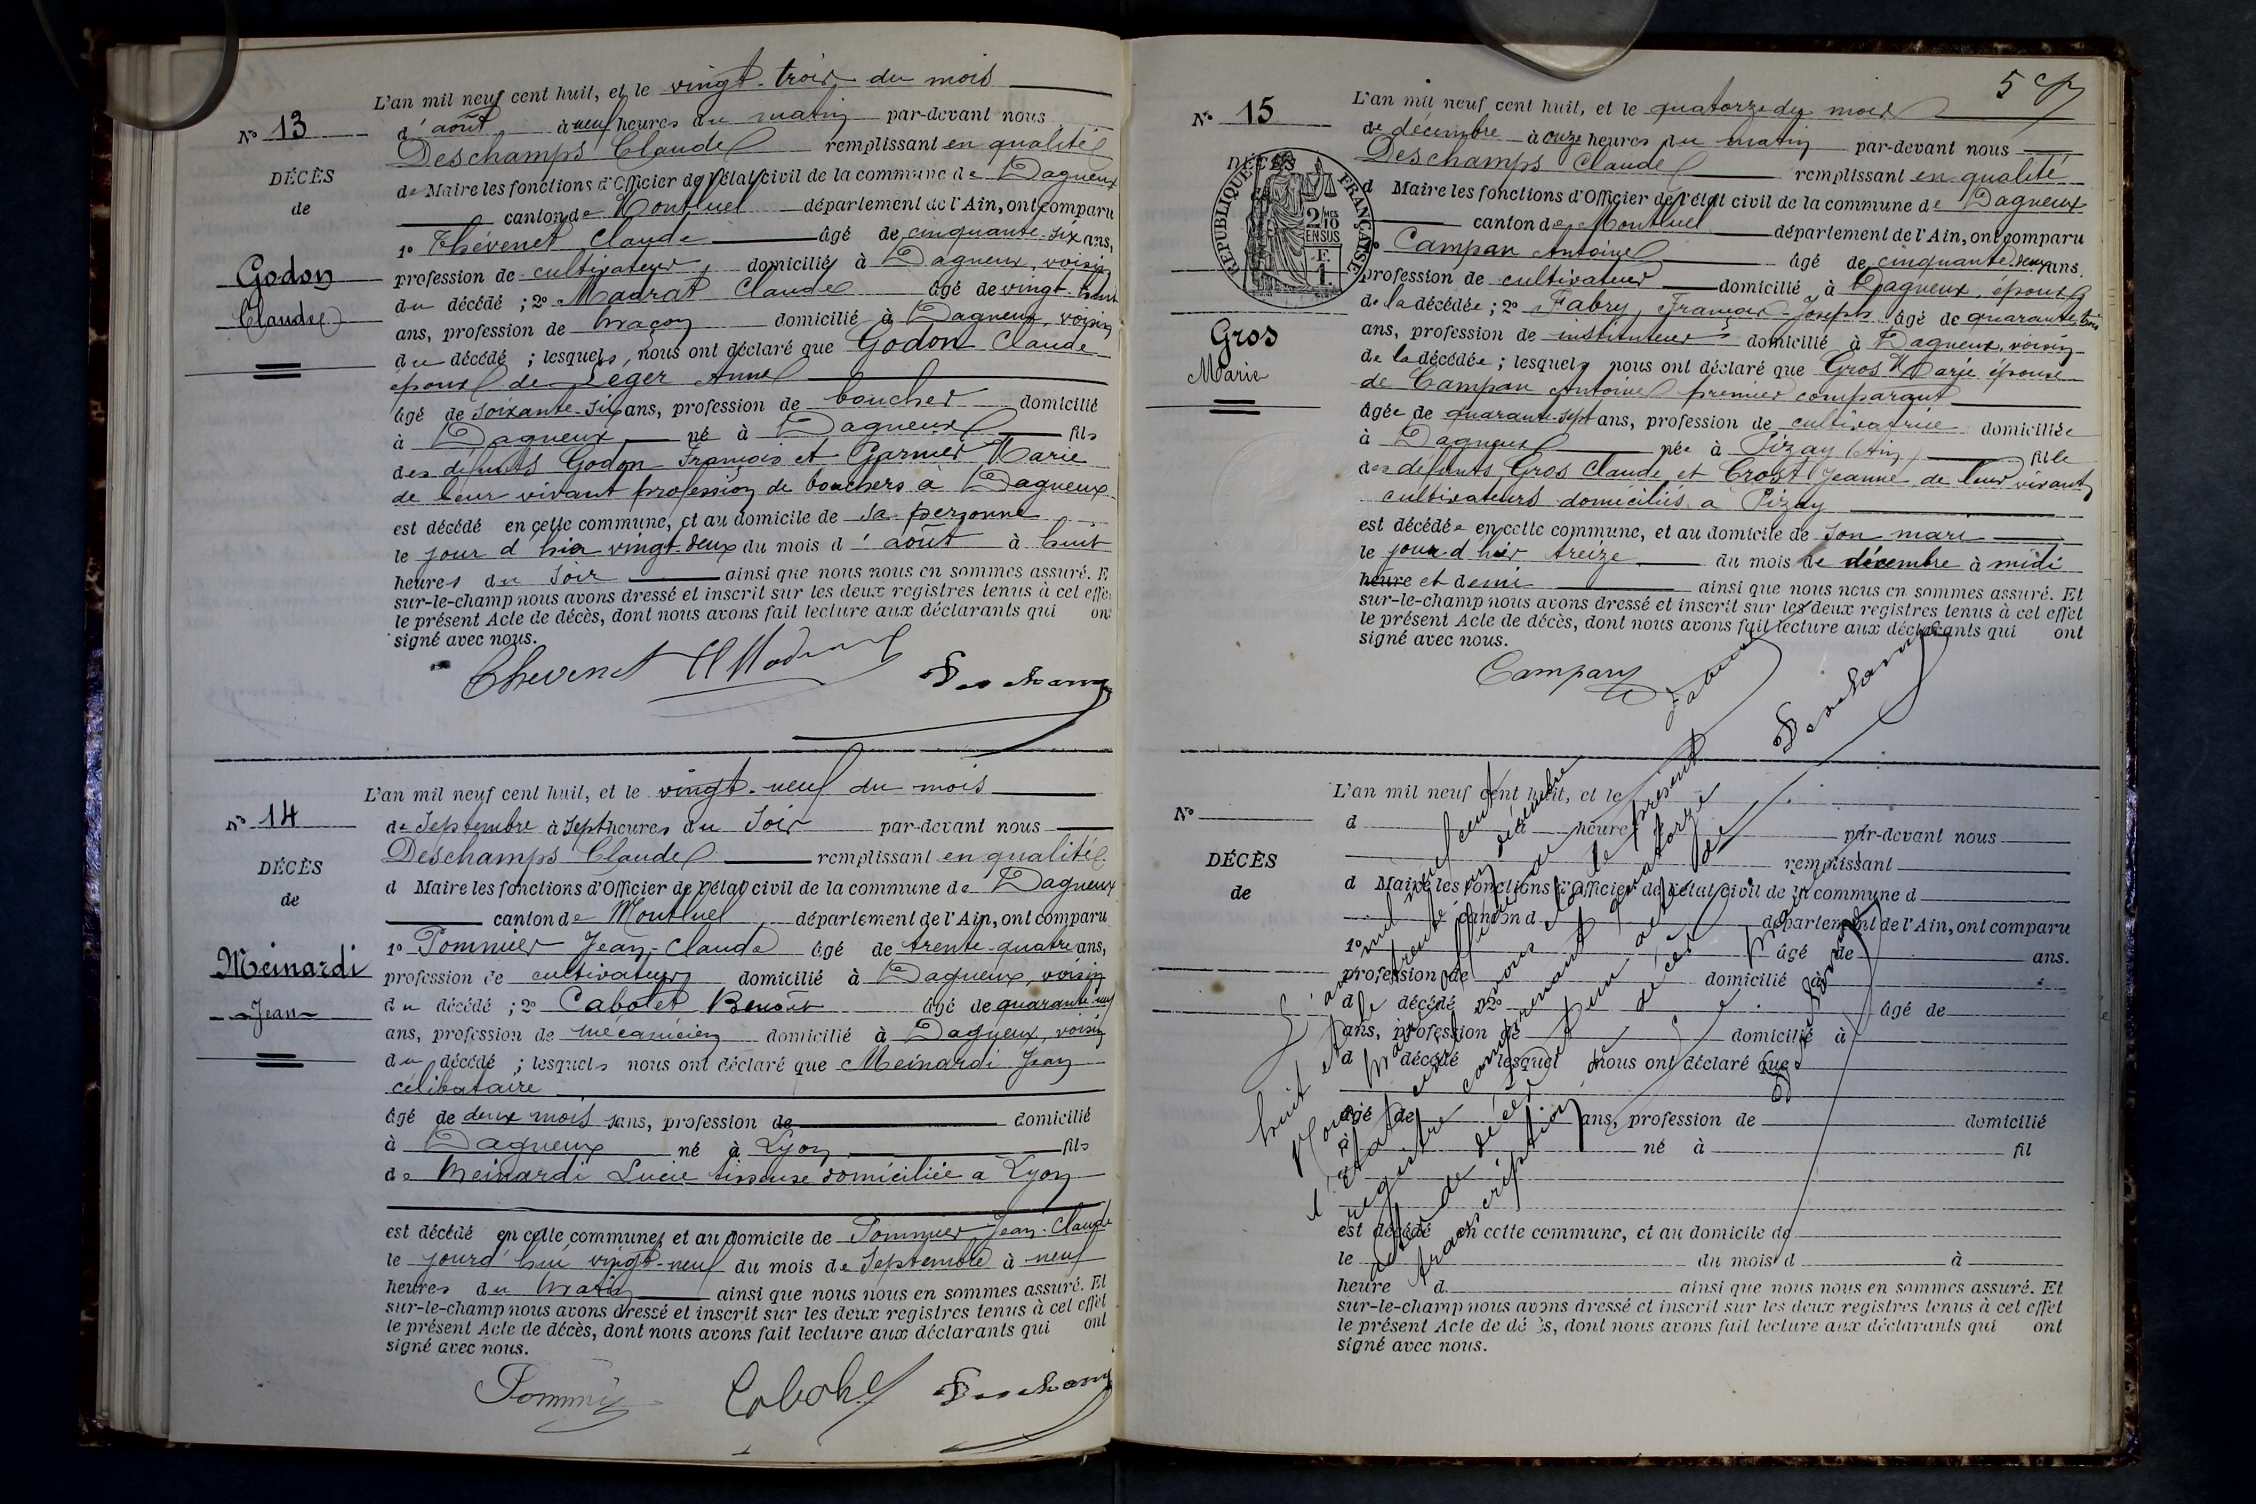 L'an mil neuf cent huit, et le vingt-trois du mois
N° 13
d'août à neuf heures du matin par-devant nous
Deschamps Claude remplissant en qualité
DÉCÈS
de Maire les fonctions d'Officier de l'état civil de la commune de Dagneux
de
canton de Montluel département de l'Ain, ont comparu
1° Thévenet Claude âgé de cinquante-six ans,
Godon
profession de cultivateur, domicilié à Dagneux, voisin
Claude
du décédé ; 2° Madrat Claude âgé de vingt-huit
ans, profession de maçon domicilié à Dagneux, voisin
du décédé ; lesquels, nous ont déclaré que Godon Claude
époux de Léger Anne
âgé de soixante-six ans, profession de boucher domicilié
à Dagneux né à Dagneux fils
des défunts Godon François et Garnier Marie
de leur vivant profession de bouchers à Dagneux
est décédé en cette commune, et au domicile de sa personne
le jour d'hier vingt-deux du mois d'août à huit
heures du soir ainsi que nous nous en sommes assuré. E
sur-le-champ nous avons dressé et inscrit sur les deux registres tenus à cet effet
le présent Acte de décès, dont nous avons fait lecture aux déclarants qui ont
signé avec nous.
Thevenet Cl Madrat Deschamps
L'an mil neuf cent huit, et le vingt-neuf du mois
N° 14
de septembre à sept heures du soir par-devant nous
Deschamps Claude remplissant en qualité
DÉCÈS
d Maire les fonctions d'Officier de l'état civil de la commune de Dagneux
de
canton de Montluel département de l'Ain, ont comparu
1° Pommier Jean-Claude âgé de trente-quatre ans,
Meinardi
profession de cultivateur domicilié à Dagneux, voisin
Jean
du décédé ; 2° Cabotet Benoît âgé de quarante-neuf
ans, profession de mécanicien domicilié à Dagneux, voisin
du décédé ; lesquels nous ont déclaré que Meinardi Jean
célibataire
âgé de deux mois sans, profession de domicilié
à Dagneux né à Lyon fils
de Meinardi Lucie tisseuse domiciliée à Lyon
est décédé en cette commune, et au domicile de Pommier Jean-Claude
le jourd'hui vingt-neuf du mois de septembre à neuf
heures du matin ainsi que nous nous en sommes assuré. Et
sur-le-champ nous avons dressé et inscrit sur les deux registres tenus à cet effet
le présent Acte de décès, dont nous avons fait lecture aux déclarants qui ont
signé avec nous.
Pommier Deschamps
5
L'an mil neuf cent huit, et le quatorze du mois
N° 15
de décembre à onze heures du matin par-devant nous
Deschamps Claude remplissant en qualité
DÉCÈS
RÉPUBLIQUE FRANÇAISE
2/10 MES EN SUS
F. 1.
d Maire les fonctions d'Officier de l'état civil de la commune de Dagneux
canton de Montluel département de l'Ain, ont comparu
Campan Antoine âgé de cinquante-deux ans.
profession de cultivateur domicilié à Dagneux, époux
de la décédée ; 2° Fabry, François-Joseph âgé de quarante-trois
Gros
ans, profession de instituteur domicilié à Dagneux, voisin
Marie
de la décédée ; lesquels nous ont déclaré que Gros Marie épouse
de Campan Antoine premier comparant
âgée de quarante-sept ans, profession de cultivatrice domiciliée
à Dagneux née à Pizay (Ain) fille
des défunts Gros Claude et Crost Jeanne de leur vivant
cultivateurs domiciliés à Pizay
est décédée en cette commune, et au domicile de son mari
le jour d'hier treize du mois de décembre à midi
heure et demi ainsi que nous nous en sommes assuré. Et
sur-le-champ nous avons dressé et inscrit sur les deux registres tenus à cet effet
le présent Acte de décès, dont nous avons fait lecture aux déclarants qui ont
signé avec nous.
Campan Fabry Deschamps
L'an mil neuf cent huit, et le
N°
d à heure par-devant nous
remplissant
DÉCÈS
d Maire les fonctions d'Officier de l'état civil de la commune d
de
canton d département de l'Ain, ont comparu
1° âgé de ans.
profession de domicilié à
d décédé 2° âgé de
ans, profession de domicilié à
d décédé lesquel nous ont déclaré que
âgé de ans, profession de domicilié
à né à fil
est décédé en cette commune, et au domicile de
le du mois d à
heure d ainsi que nous nous en sommes assuré. Et
sur-le-champ nous avons dressé et inscrit sur les deux registres tenus à cet effet
le présent Acte de dé ès, dont nous avons fait lecture aux déclarants qui ont
signé avec nous.
L'an mil neuf cent
huit et le trente un décembre
Nous Maire officier de
l'état civil avons clos le présent
registre comprenant quatorze
actes de décès et un acte de
transcription de décès
Le Maire
Deschamps